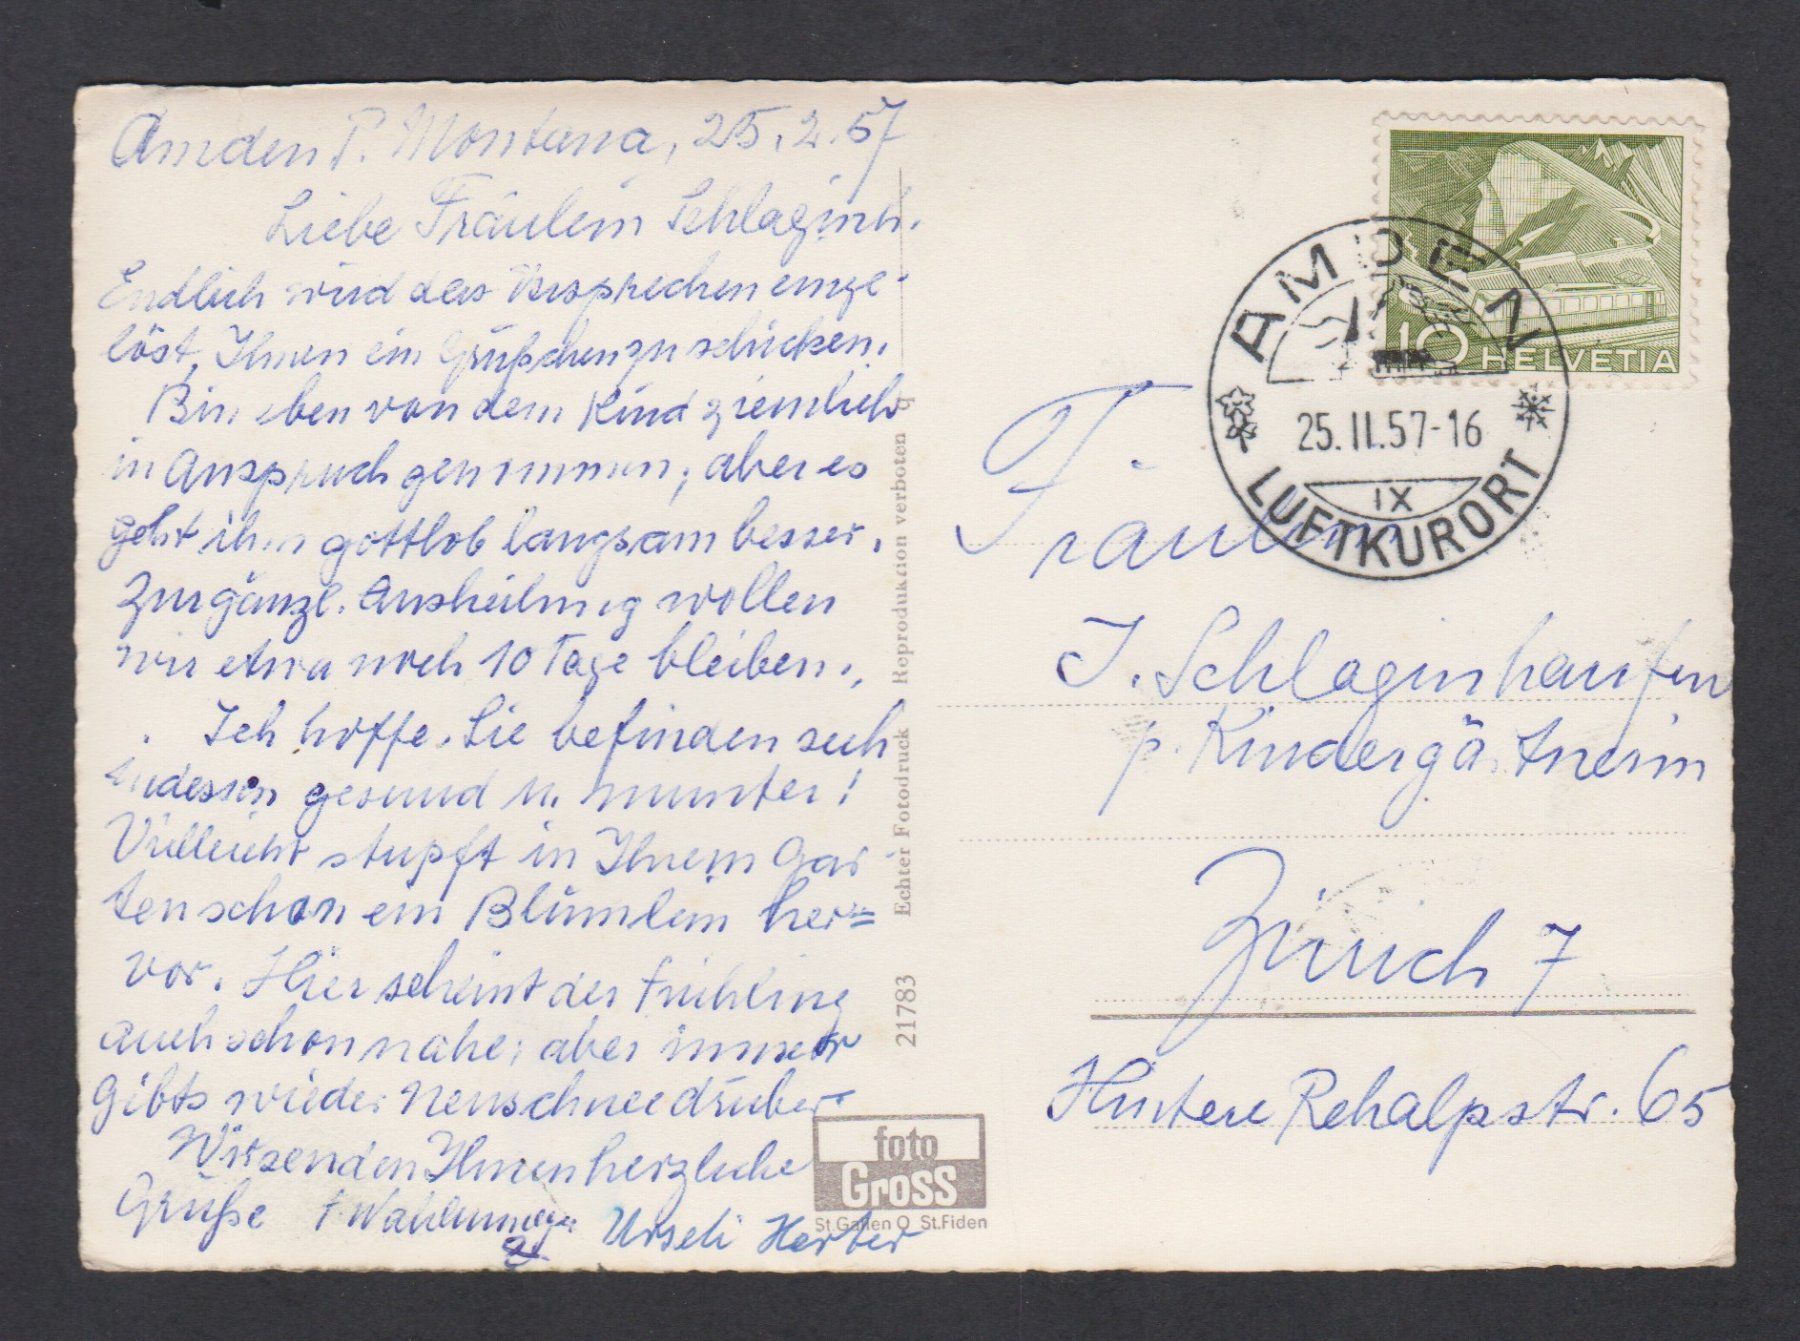 Amden P. Montana, 25.2.57
Liebe Fräulein Schlaginh.
Endlich wird das Versprechen einge-
löst, Ihnen ein Grüßchen zu schicken.
Bin eben von dem Kind ziemlich
in Anspruch genommen, aber es
geht ihm gottlob langsam besser.
Zur gänzl. Ausheilung wollen
wir etwa noch 10 Tage bleiben.
Ich hoffe, Sie befinden sich
indessen gesund u. munter!
Vielleicht stupft in Ihrem Gar-
ten schon ein Blümlein her=
vor. Hier scheint der Frühling
auch schon nahe; aber immer
gibts wieder Neuschnee drüber.
Wir senden Ihnen herzliche
Grüße
Urseli Herter
21783 Echter Fotodruck Reproduktion verboten q
foto
Gross
St.Gallen O St.Fiden
10 HELVETIA
AMDEN
25.II.57-16
IX
LUFTKURORT
Fräulein
J. Schlaginhaufen
p. Kindergärtnerin
Zürich 7
Hintere Rehalpstr. 65